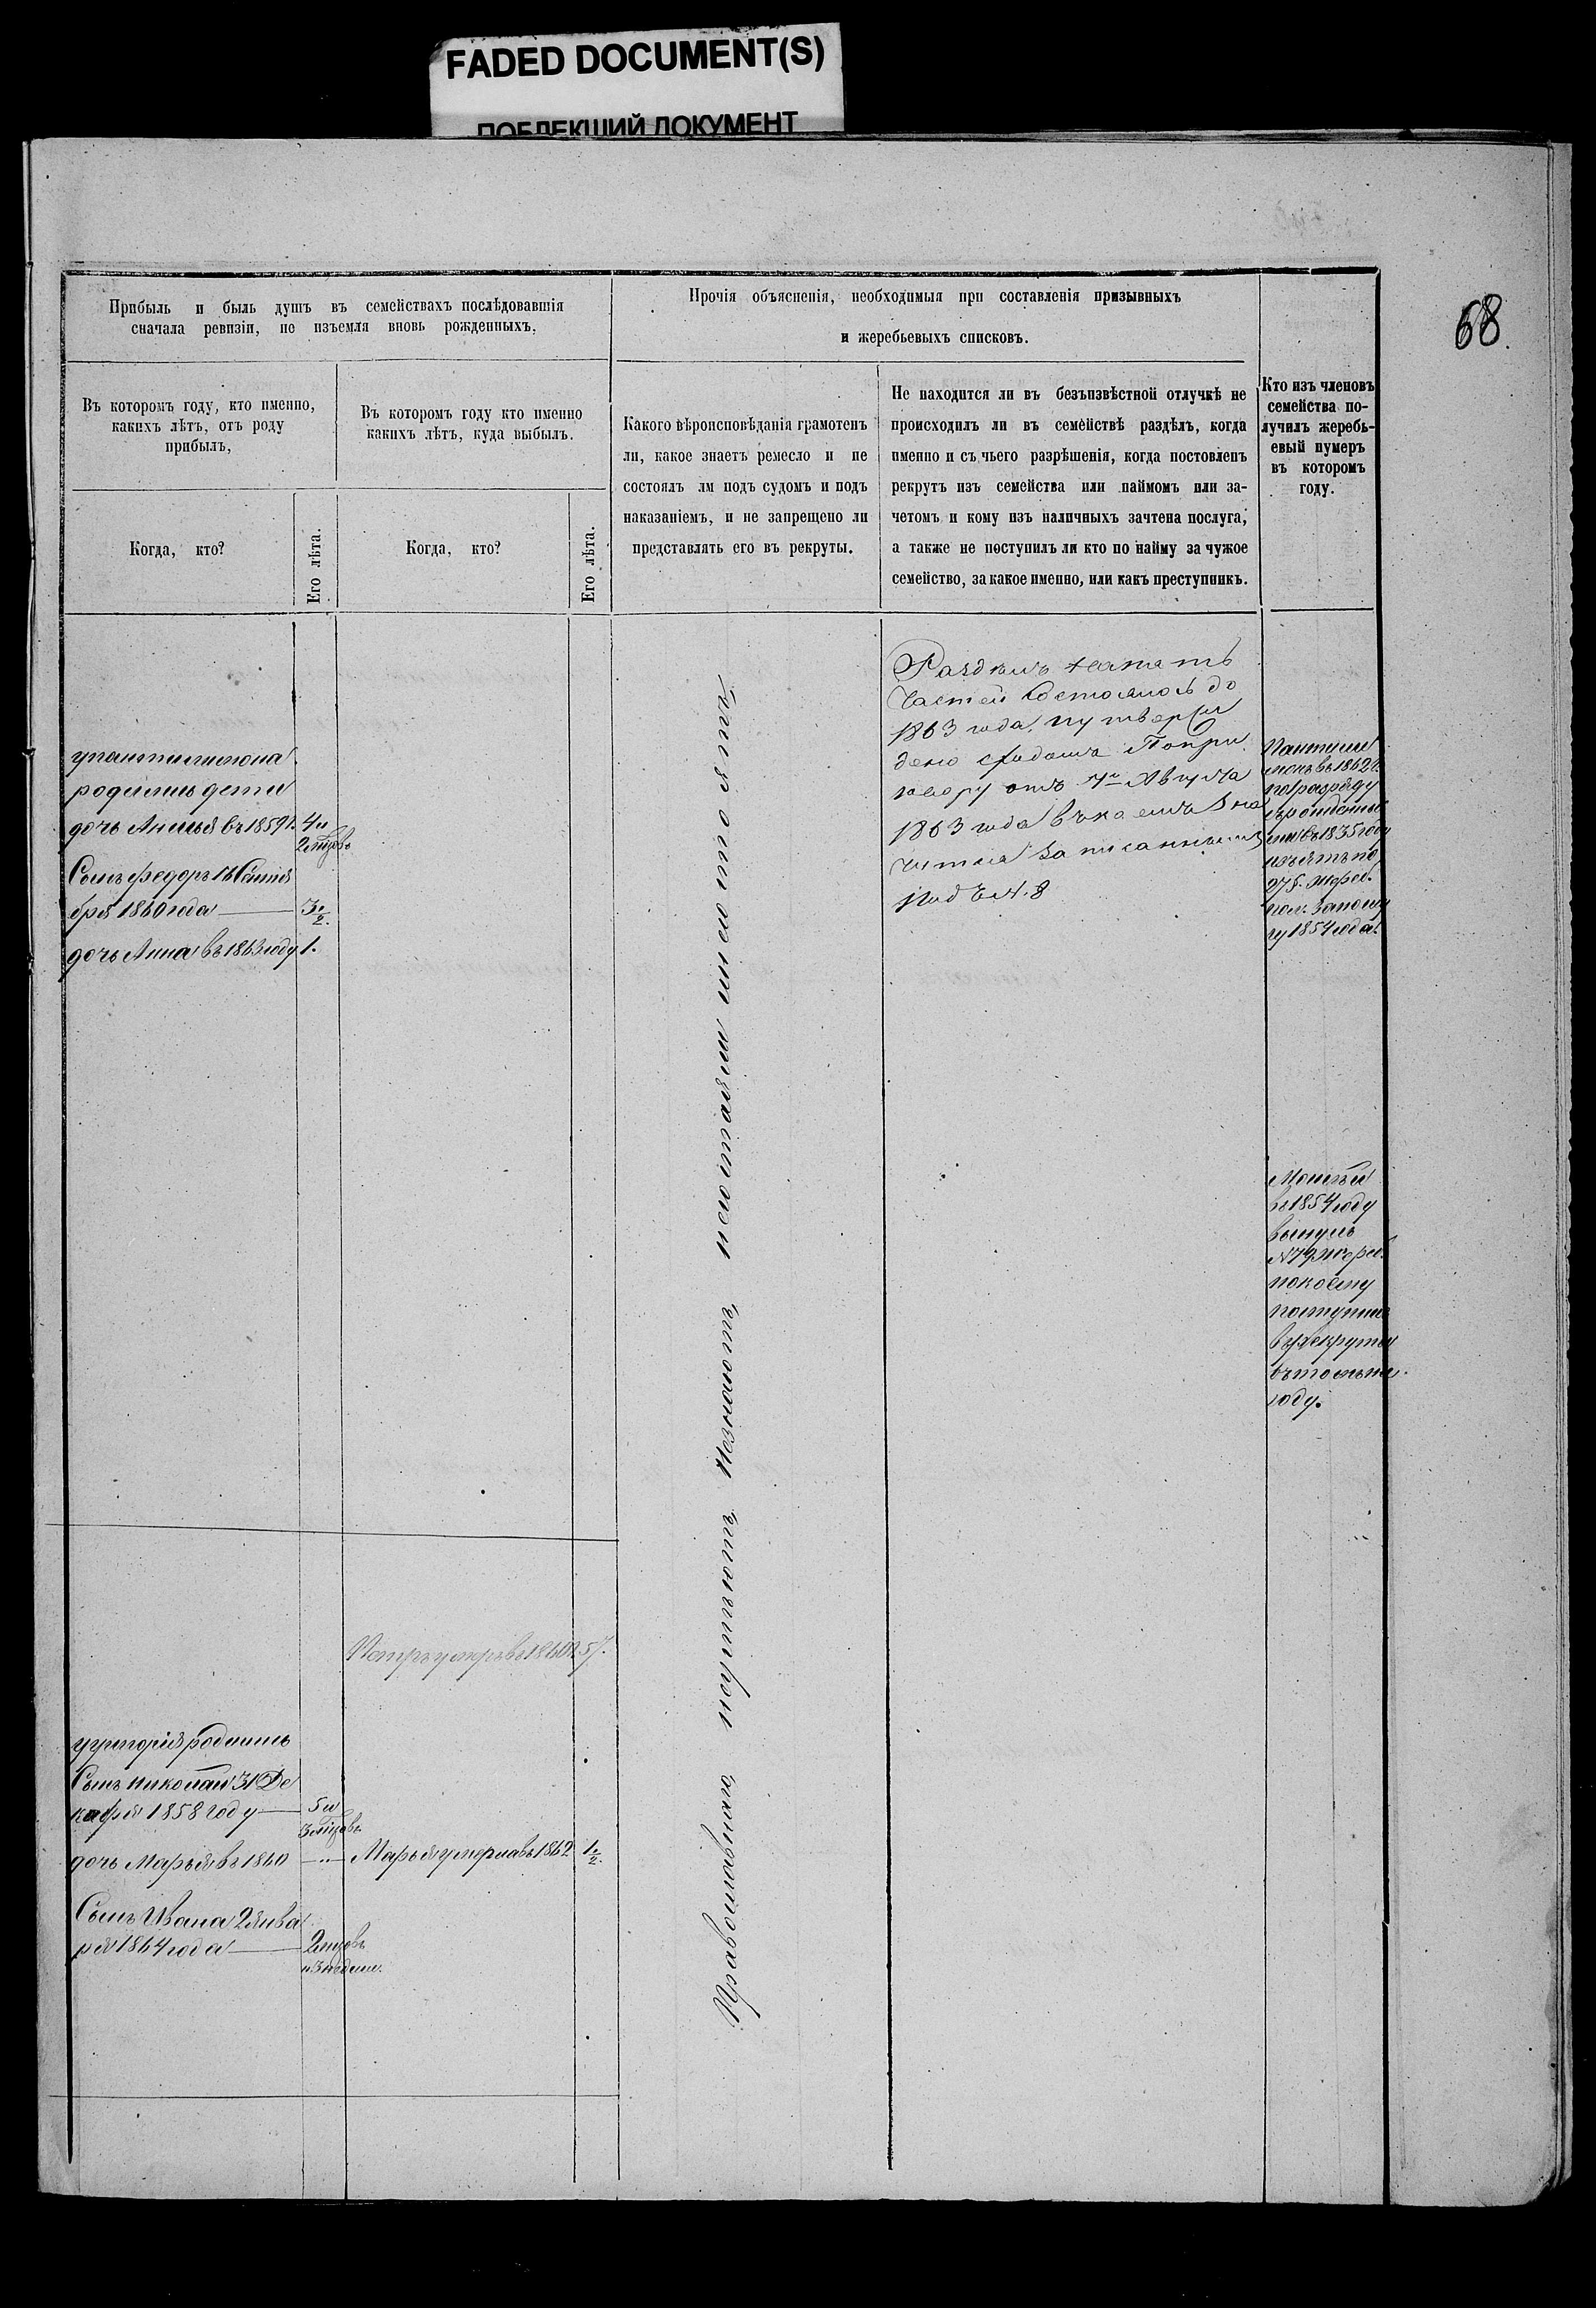 FADED DOCUMENT(S)
ПОБЛЕКШИЙ ДОКУМЕНТ
68.
Прибыль и быль душъ въ семействахъ послѣдовавшія
сначала ревизіи, не изъемля вновь рожденныхъ.
Прочія объясненія, необходимыя при составленія призывныхъ
и жеребьевыхъ списковъ.
Въ которомъ году, кто именно,
какихъ лѣтъ, отъ роду
прибылъ,
Въ которомъ году кто именно
какихъ лѣтъ, куда выбылъ.
Какого вѣроисповѣданія грамотенъ
ли, какое знаетъ ремесло и не
состоялъ лм подъ судомъ и подъ
наказаніемъ, и не запрещено ли
представлять его въ рекруты.
Не находится ли въ безъизвѣстной отлучкѣ не
происходилъ ли въ семействѣ раздѣлъ, когда
именно и съ чьего разрѣшенія, когда постовленъ
рекрутъ изъ семейства или наймомъ или за-
четомъ и кому изъ наличныхъ зачтена послуга,
а также не поступилъ ли кто по найму за чужое
семейство, за какое именно, или какъ преступникъ.
Кто изъ членовъ
семейства по-
лучилъ жеребь-
евый нумеръ
въ которомъ
году.
Когда, кто?
Его лѣта.
Когда, кто?
Его лѣта.
родились дети
дочь въ 1859г. 4и
Сынъ федоръ
бря 1860 года 3 1/2.
дочь Анна въ 1863 году 1.
Раздѣлъ на пять
частей состоялось до
1863 года, и утверж
дено сходомъ По при
говору отъ Августа
1863 года
записаннымъ
подъ № 8
въ 1862 г.
по разряду
въ 1835 году
изъятъ по
275. жереб.
1854 года.
Моисѣй
въ 1854 году
вынулъ
жереб.
по коему
поступилъ
въ рекруты
въ томъ же
году.
Православнаго, неумѣютъ, незнаютъ, несостояли и не состоятъ,
Петръ умеръ въ 1860 г. 57.
у григорія родились
Сынъ николай 31 Де
кабря 1858 году 5 и
дочь Марья въ 1860 — Марья умерла въ 1862 1 1/2.
Сынъ Ивана 2 янва
ря 1864 года 2 мцовъ
и 3 недели.